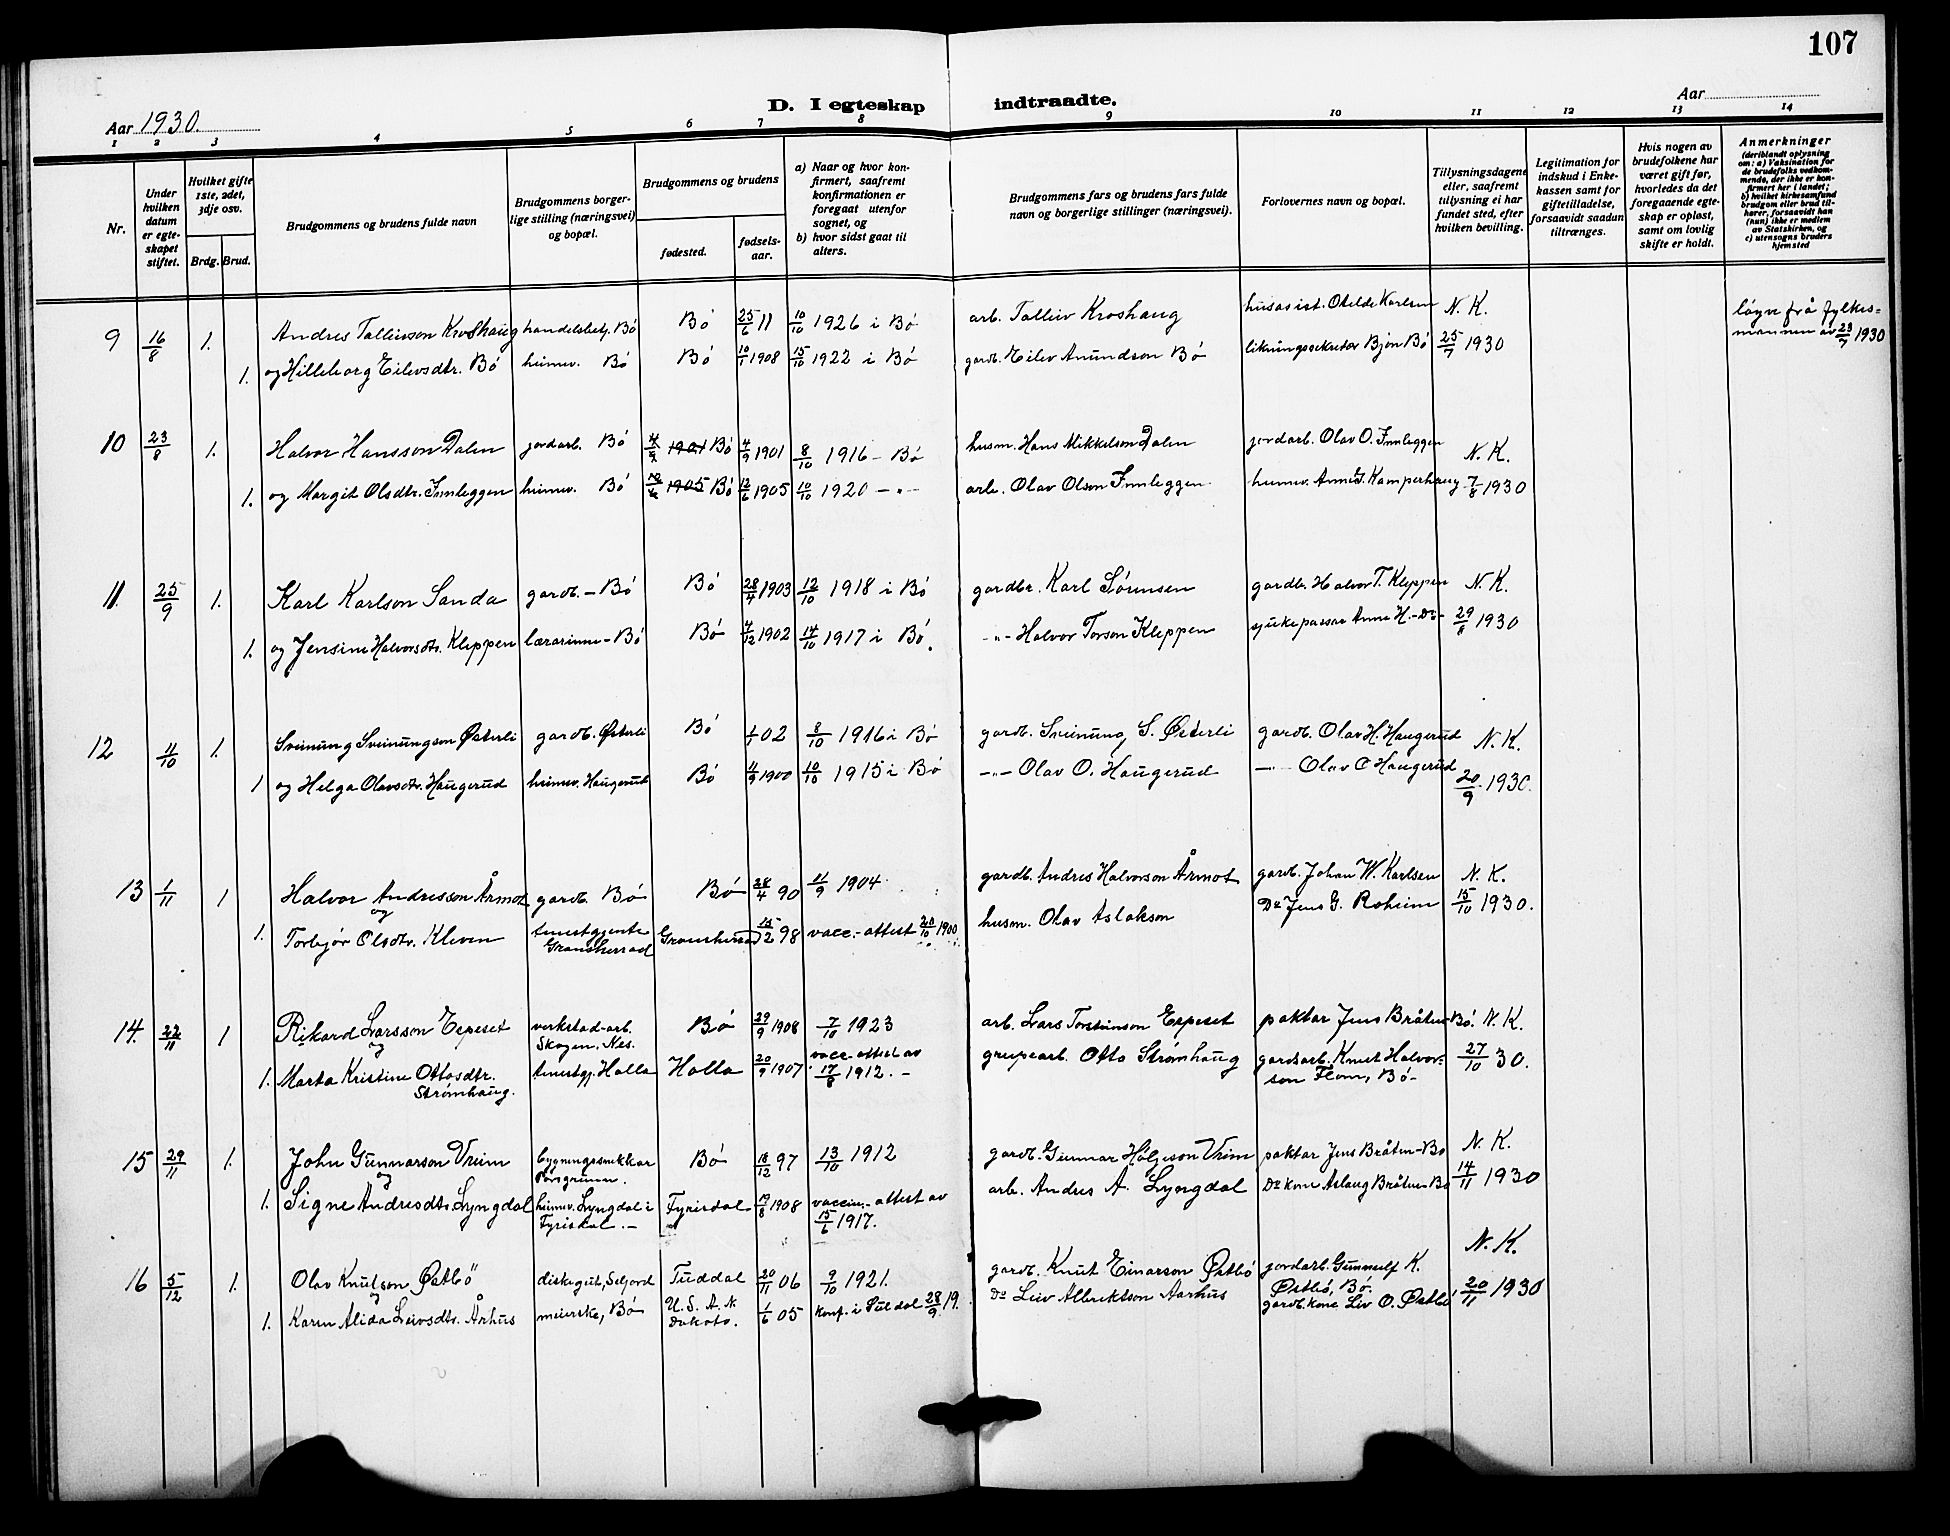 107
D. I egteskap indtraadte.
Aar 1930.
Aar
1 2 3 4 5 6 7 8 9 10 11 12 13 14
Nr.
Under hvilken datum er egteskapet stiftet.
Hvilket gifte 1ste, 2det, 3dje osv.
Brdg. Brud.
Brudgommens og brudens fulde navn
Brudgommens borgerlige stilling (næringsvei) og bopæl.
Brudgommens og brudens
fødested.
fødselsaar.
a) Naar og hvor konfirmert, saafremt konfirmationen er foregaat utenfor sognet, og
b) hvor sidst gaat til alters.
Brudgommens fars og brudens fars fulde navn og borgerlige stillinger (næringsvei).
Forlovernes navn og bopæl.
Tillysningsdagene eller, saafremt tillysning ei har fundet sted, efter hvilken bevilling.
Legitimation for indskud i Enkekassen samt for giftetilladelse, forsaavidt saadan tiltrænges.
Hvis nogen av brudefolkene har været gift før, hvorledes da det foregaaende egteskap er opløst, samt om lovlig skifte er holdt.
Anmerkninger
(deriblandt oplysning om: a) Vaksination for de brudefolks vedkommende, der ikke er konfirmert her i landet; b) hvilket kirkesamfund brudgom eller brud tilhører, forsaavidt han (hun) ikke er medlem av Statskirken, og c) utensogns bruders hjemsted
9 16/8 1. Andres Tallivson Kroshaug handelsbetj. Bó Bó 25/6 11 10/10 1926 i Bó arb. Talleiv Kroshaug husasist. Otelde Karlsen N. K. løyve frå fylkes-
1. og Hilleborg Eilevsdtr. Bó heimev. Bó Bó 10/1 1908 15/10 1922 i Bó gardb. Eilev Anundson Bó likningssekretær Bjón Bó 25/7 1930 mannen av 23/7 1930
10 23/8 1. Halvor Hansson Dalen jordarb. Bó 4/9 1901 Bó 4/9 1901 8/10 1916 - Bó husm. Hans Mikkelson Dalen jordarb. Olav O. Innleggen N. K.
1. og Margit Olsdtr. Innleggen heimev. Bó 12/6 1905 Bó 12/6 1905 10/10 1920 -"- arb. Olav Olson Innleggen heimev. Anne J. Kamperhaug 7/8 1930
11. 25/9 1. Karl Karlson Sanda gardb. - Bó Bó 28/4 1903 12/10 1918 i Bó gardbr. Karl Sørensen gardbr. Halvor T. Kleppen N. K.
1. og Jensine Halvorsdtr. Kleppen lærarinne - Bó Bó 4/12 1902 14/10 1917 i Bó. -"- Halvor Torson Kleppen sjukepassar Anne H. - Do - 29/8 1930
12 4/10 1. Sveinung Sveinungson Østerli gardb. Østerli Bó 1/1 02 8/10 1916 i Bó gardb. Sveinung S. Østerli gardb. Olav H. Haugerud N. K.
1 og Helga Olavsdtr. Haugerud heimev. Haugerud Bó 11/9 1900 10/10 1915 i Bó -"- Olav O. Haugerud -"- Olav O Haugerud 20/9 1930.
13 1/11 1 Halvor Andresson Årmot gardb. Bó Bó 28/4 90 11/9 1904 gardb. Andres Halvorson Årmot gardb. Johan W. Karlsen N. K.
og
1. Torbjør Olsdtr. Kleven tenestgjente Gransherrad Gransherrad 15/2 98 vacc.-attest 20/10 1900 husm. Olav Aslakson Do Jens G. Roheim 15/10 1930.
14. 22/11 1 Rikard Larsson Espeset verkstad-arb. Skogen, Nes. Bó 29/9 1908 7/10 1923 arb. Lars Torsteinson Espeset paktar Jens Bråten - Bó. N. K.
og
1. Marta Kristine Ottosdtr. Strømhaug. tenestgj. Holla Holla 20/9 1907 vacc.-attest av 17/8 1912. - gruvearb. Otto Strømhaug gardsarb. Knut Halvorson Flom, Bó - 27/10 30.
15 29/11 1. John Gunnarson Vreim bygningssnikkar Porsgrunn. Bó 18/12 97 13/10 1912 gardb. Gunnar Hølgeson Vreim paktar Jens Bråten - Bo N. K.
og
1. Signe Andresdtr. Lyngdal heimev. Lyngdal i Fyrisdal. - Fyrisdal 19/8 1908 vaccin.-attest av 15/6 1917. arb. Andres A. Lyngdal Do kone Aslaug Bråten - Bo 14/11 1930
16 5/12 1. Olav Knutson Østbö diskegut, Seljord Tuddal 20/11 06 9/10 1921. gardb. Knut Einarson Østbó jordarb. Gunnulf K. Østbó, Bó. N. K.
og
1. Karen Alida Leivsdtr. Århus meierske, Bó U. S. A. N. Dakota. 1/6 05 konf. i Suldal 28/9 19. Do Leiv Albriktson Aarhus gardb. kone Liv O. Østbó 20/11 1930